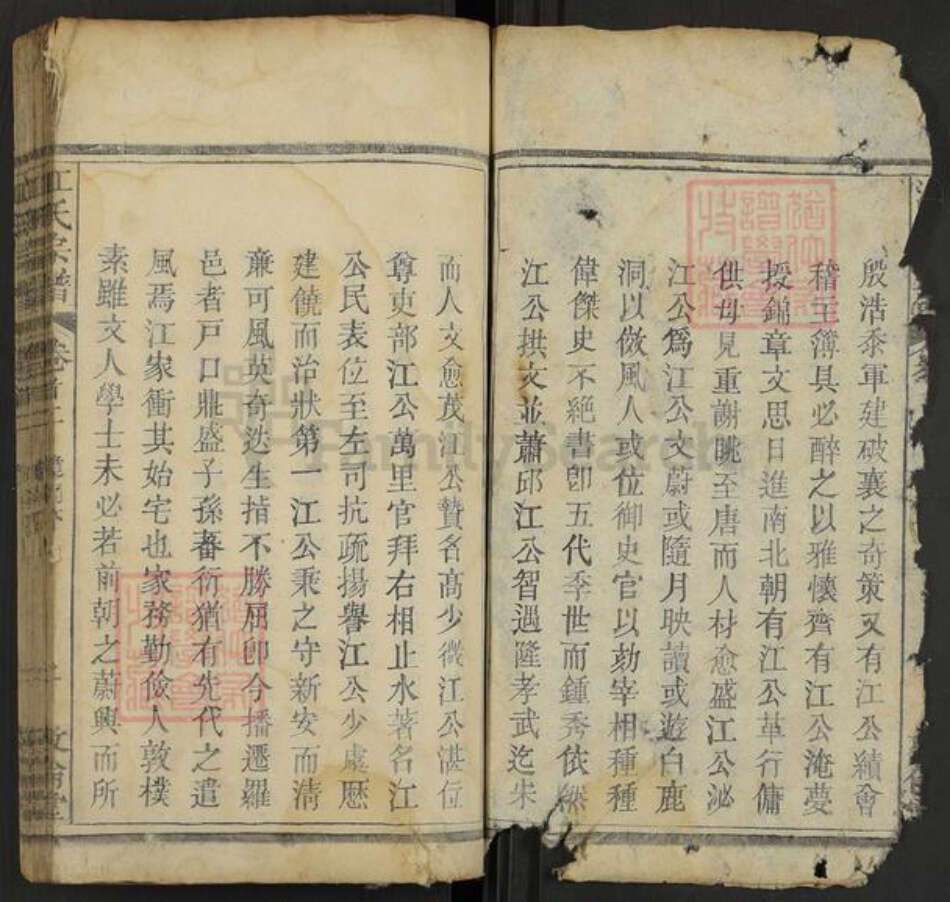 殷浩叅軍建破襄之奇策又有江公績會
稽主簿具必醉之以雅懷齊有江公淹夢
授錦章文思日進南北朝有江公革行傭
供母見重謝眺至唐而人材愈盛江公泌
江公爲江公文蔚或隨月映讀或遊白鹿
洞以倣風人或位御史官以劾宰相種種
偉傑史不絕書卽五代季世而鍾秀依然
江公拱文並蕭邱江公智遇隆孝武迄宋
而人文愈茂江公贊名高少微江公湛位
尊吏部江公萬里官拜右相止水著名江
公民表位至左司抗疏揚譽江公少虞歷
建饒而治狀第一江公秉之守新安而清
亷可風英奇迭生指不勝屈卽今播遷羅
邑者戸口鼎盛子孫蕃衍猶有先代之遺
風焉江家衝其始宅也家務勤儉人敦樸
素雖文人學士未必若前朝之蔚興而所
江氏宗譜 卷首
FamilySearch